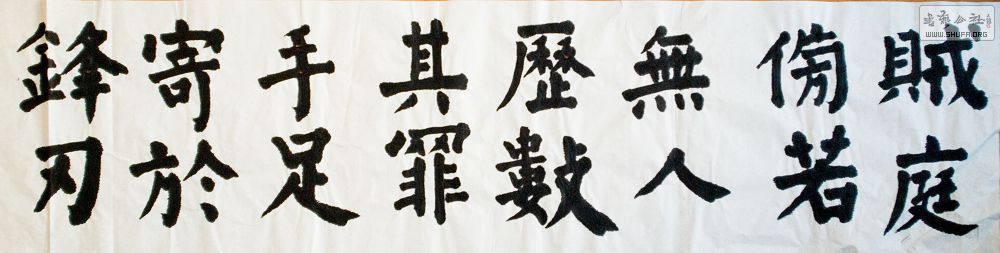 賊庭
傍若
無人
歷數
其罪
手足
寄於
鋒刃
書法公社
WWW.SHUFA.ORG